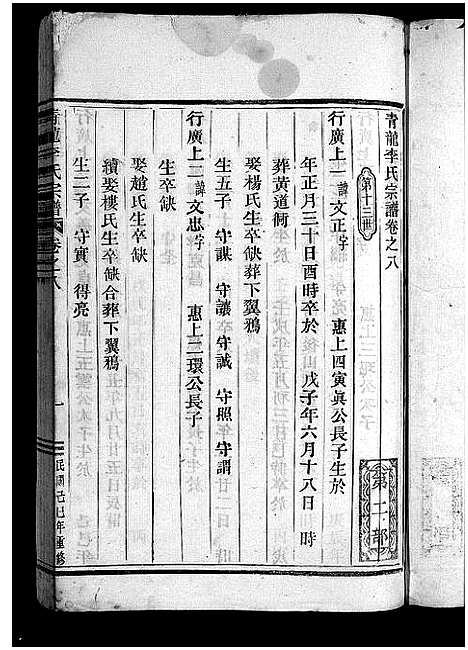 青龍李氏宗譜卷之八
第十三世
第二部
行廣上一諱文正字 惠上四寅眞公長子生於
年正月三十日酉時卒於 戊子年六月十八日 時
葬黃道衕
娶楊氏生卒缺葬下翼鴉
生五子 守謀 守讓 守誠 守照 守謂
行廣上二諱文忠字 惠上三環公長子生於
生卒缺
娶趙氏生卒缺
續娶樓氏生卒缺合葬下翼鴉
生二子 守實 得亮
青龍李氏宗譜 卷之八 一 民國己巳年重修